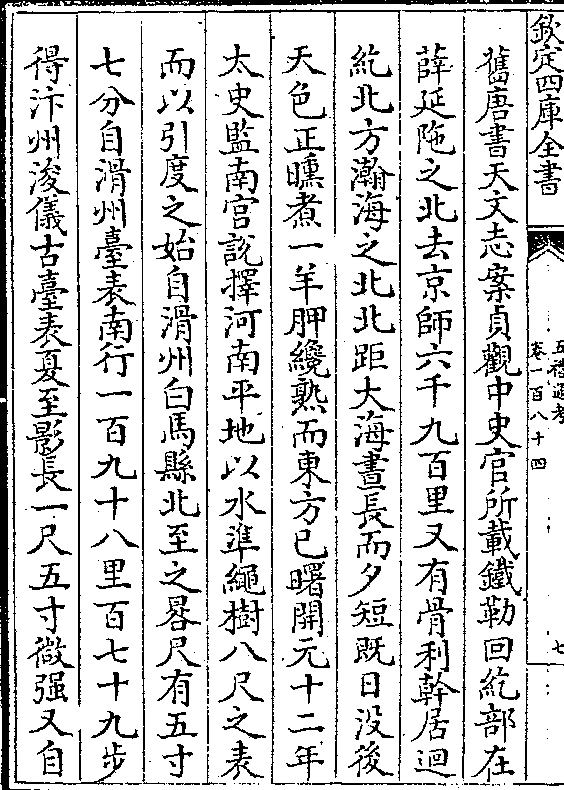 欽定四庫全書
五禮通考
卷一百八十四
七
舊唐書天文志案貞觀中史官所載鐵勒回紇部在
薛延陁之北去京師六千九百里又有骨利幹居迴
紇北方瀚海之北北距大海晝長而夕短既日没後
天色正曛煮一羊胛纔熟而東方已曙開元十二年
太史監南宫說擇河南平地以水準繩樹八尺之表
而以引度之始自滑州白馬縣北至之晷尺有五寸
七分自滑州臺表南行一百九十八里百七十九步
得汴州浚儀古臺表夏至影長一尺五寸微强又自